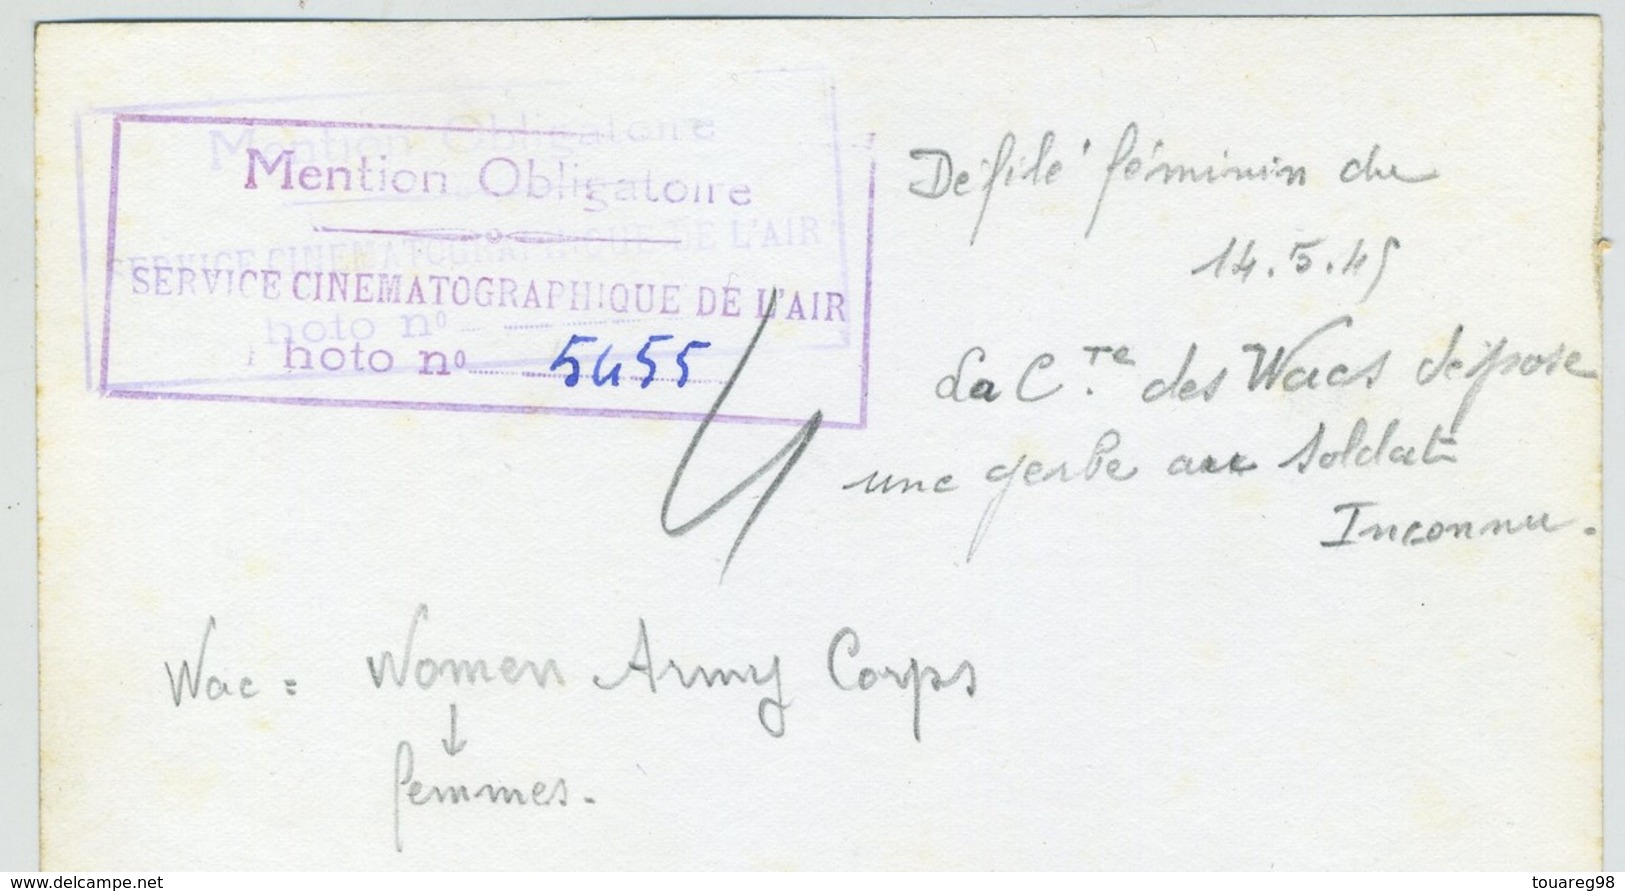 Mention Obligatoire
SERVICE CINEMATOGRAPHIQUE DE L'AIR
hoto nº
Mention Obligatoire
SERVICE CINEMATOGRAPHIQUE DE L'AIR
hoto nº 5455
Défilé féminin du
14.5.45
La C.te des Wacs dépose
une gerbe au Soldat
Inconnu.
Wac = Women Army Corps
↓
femmes.
www.delcampe.net
touareg98